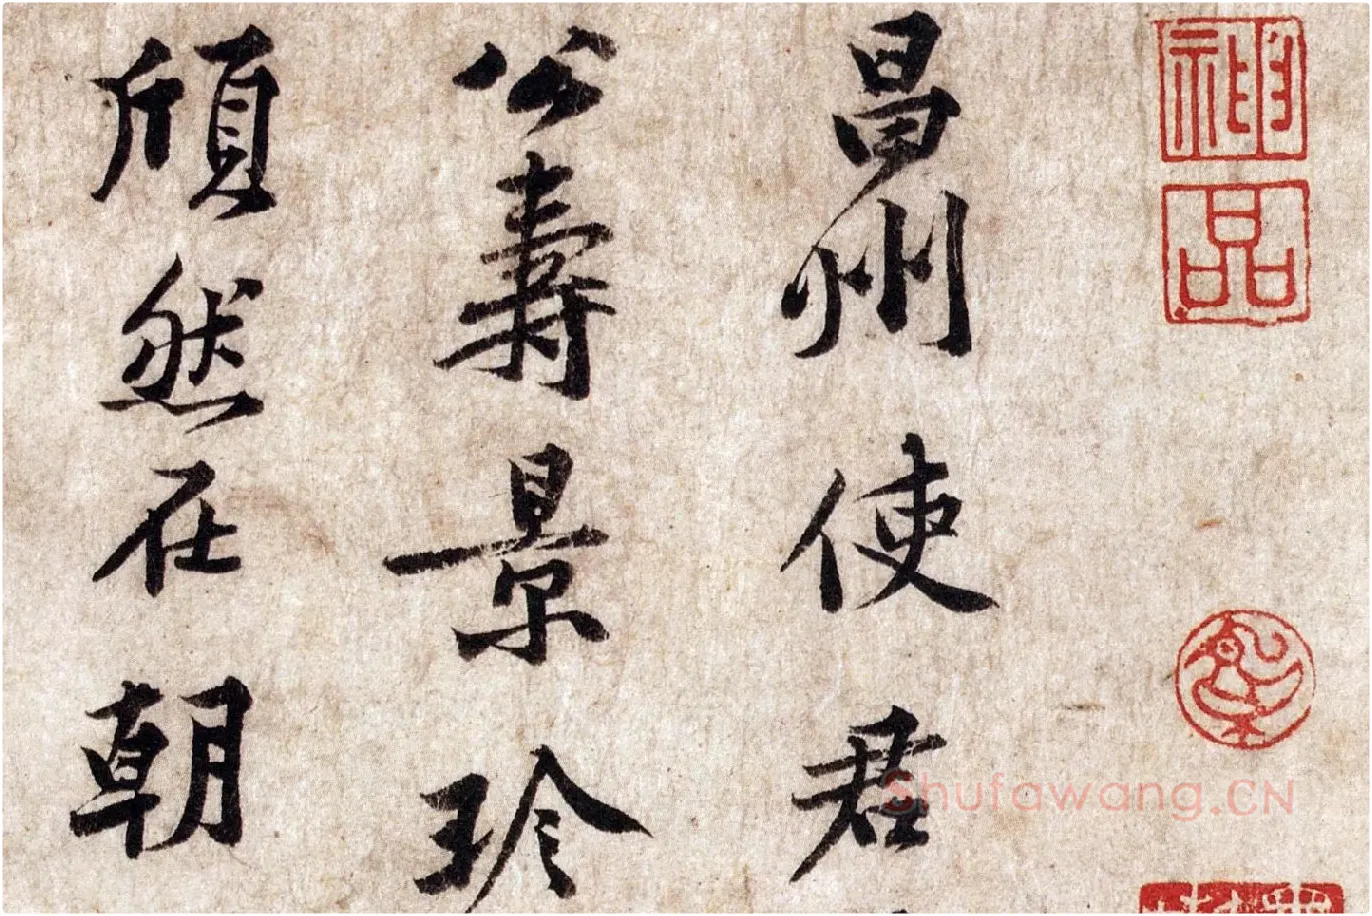 神
品
昌州使君
公壽景珍
頎然在朝
Shufawang.CN